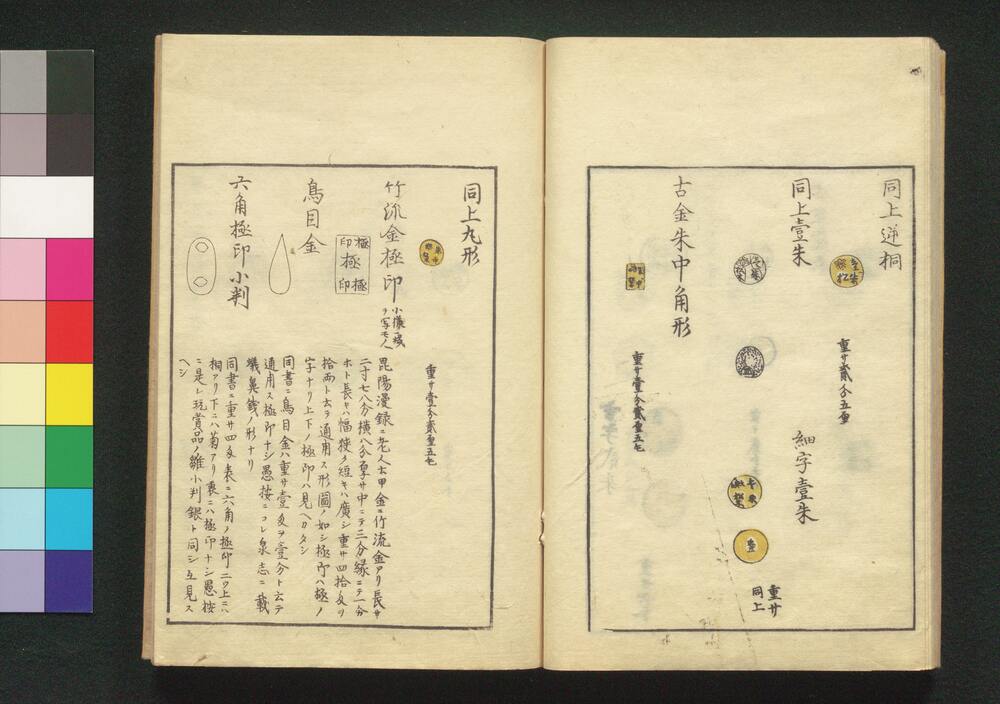 同上逆桐
重サ貳分五重
同上壹朱
細字壹朱
壹
重サ
同上
古金朱中角形
重サ壹分貳重五毛
同上丸形
重サ壹分貳重五毛
竹流金極印
小攘ノ残
ヲ写モノ
極極
印極印
昆陽漫録ニ老人云甲金ニ竹流金アリ長サ
二寸七八分横八分厚サ中ニテ三分縁ニテ一分
ホト長キハ幅狭ク短キハ廣シ重サ四拾匁ヲ
拾両ト云ヲ通用ス形圖ノ如シ極印ハ極ノ
字ナリ上下ノ極印ハ見ヘカタシ
鳥目金
同書ニ鳥目金ハ重サ壹匁ヲ壹分ト云テ
通用ス極印ナシ愚按ニコレ泉志ニ載
蟻鼻銭ノ形ナリ
六角極印小判
同書ニ重サ四匁表ニ六角ノ極印二ツ上ニハ
桐アリ下ニハ菊アリ裏ニハ極印ナシ愚按
ニ是レ玩賞品ノ雛小判銀ト同シ互見ス
ヘシ